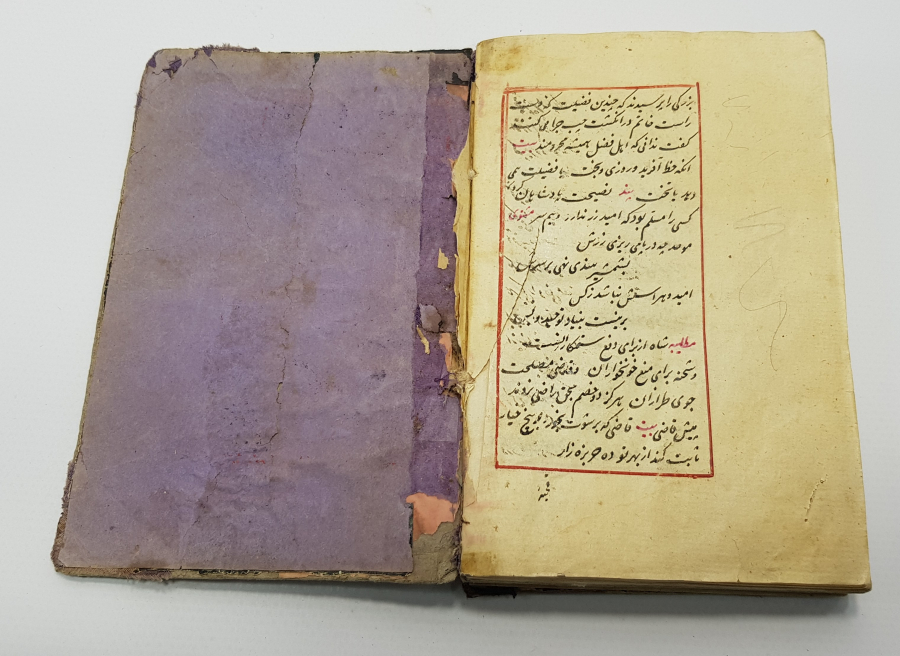 بزرگی را پرسیدند که چندین فضیلت که دست
راست خاتم در انگشت چپ چرا می کنند
گفت ندانی که اهل فضل همیشه محرومند بیت
آنکه حظ آفرید و روزی و بخت یا فضیلت می
دهد یا تخت پند نصیحت پادشاهان کردن
کسی را مسلم بود که امید زر ندارد و بیم سر مثنوی
موحد چه در پای ریزی زرش
بشمشیر هندی نهی بر سرش
امید و هراسش نباشد ز کس
برینست بنیاد توحید و بس
شاه از برای دفع ستمکارانست
و شحنه برای منع خونخواران و قاضی مصلحت
جوی طراران هرگز دو خصم بحق راضی نزد
پیش قاضی بیت قاضی که برشوت بخورد پنج خیار
ثابت کند از بهر تو ده خربزه زار